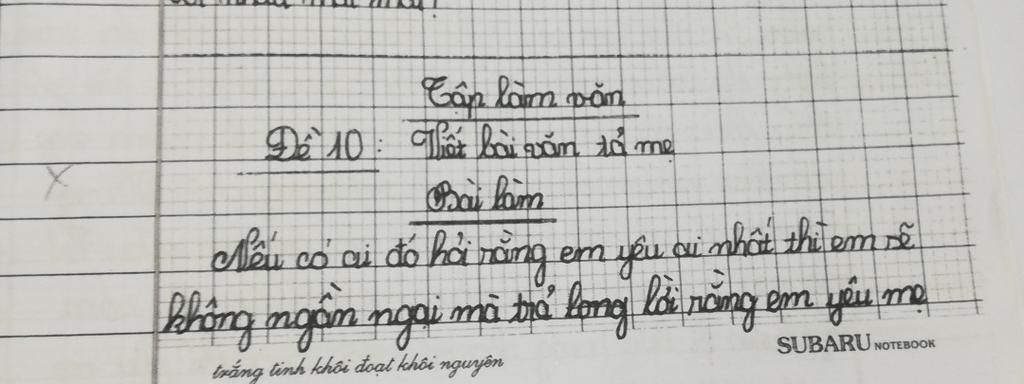 Tập làm văn
Đề 10: Viết bài văn tả mẹ
Bài làm
Nếu có ai đó hỏi rằng em yêu ai nhất thì em sẽ
không ngần ngại mà trả long lời rằng em yêu mẹ
SUBARU NOTEBOOK
trắng tinh khôi đoạt khôi nguyên